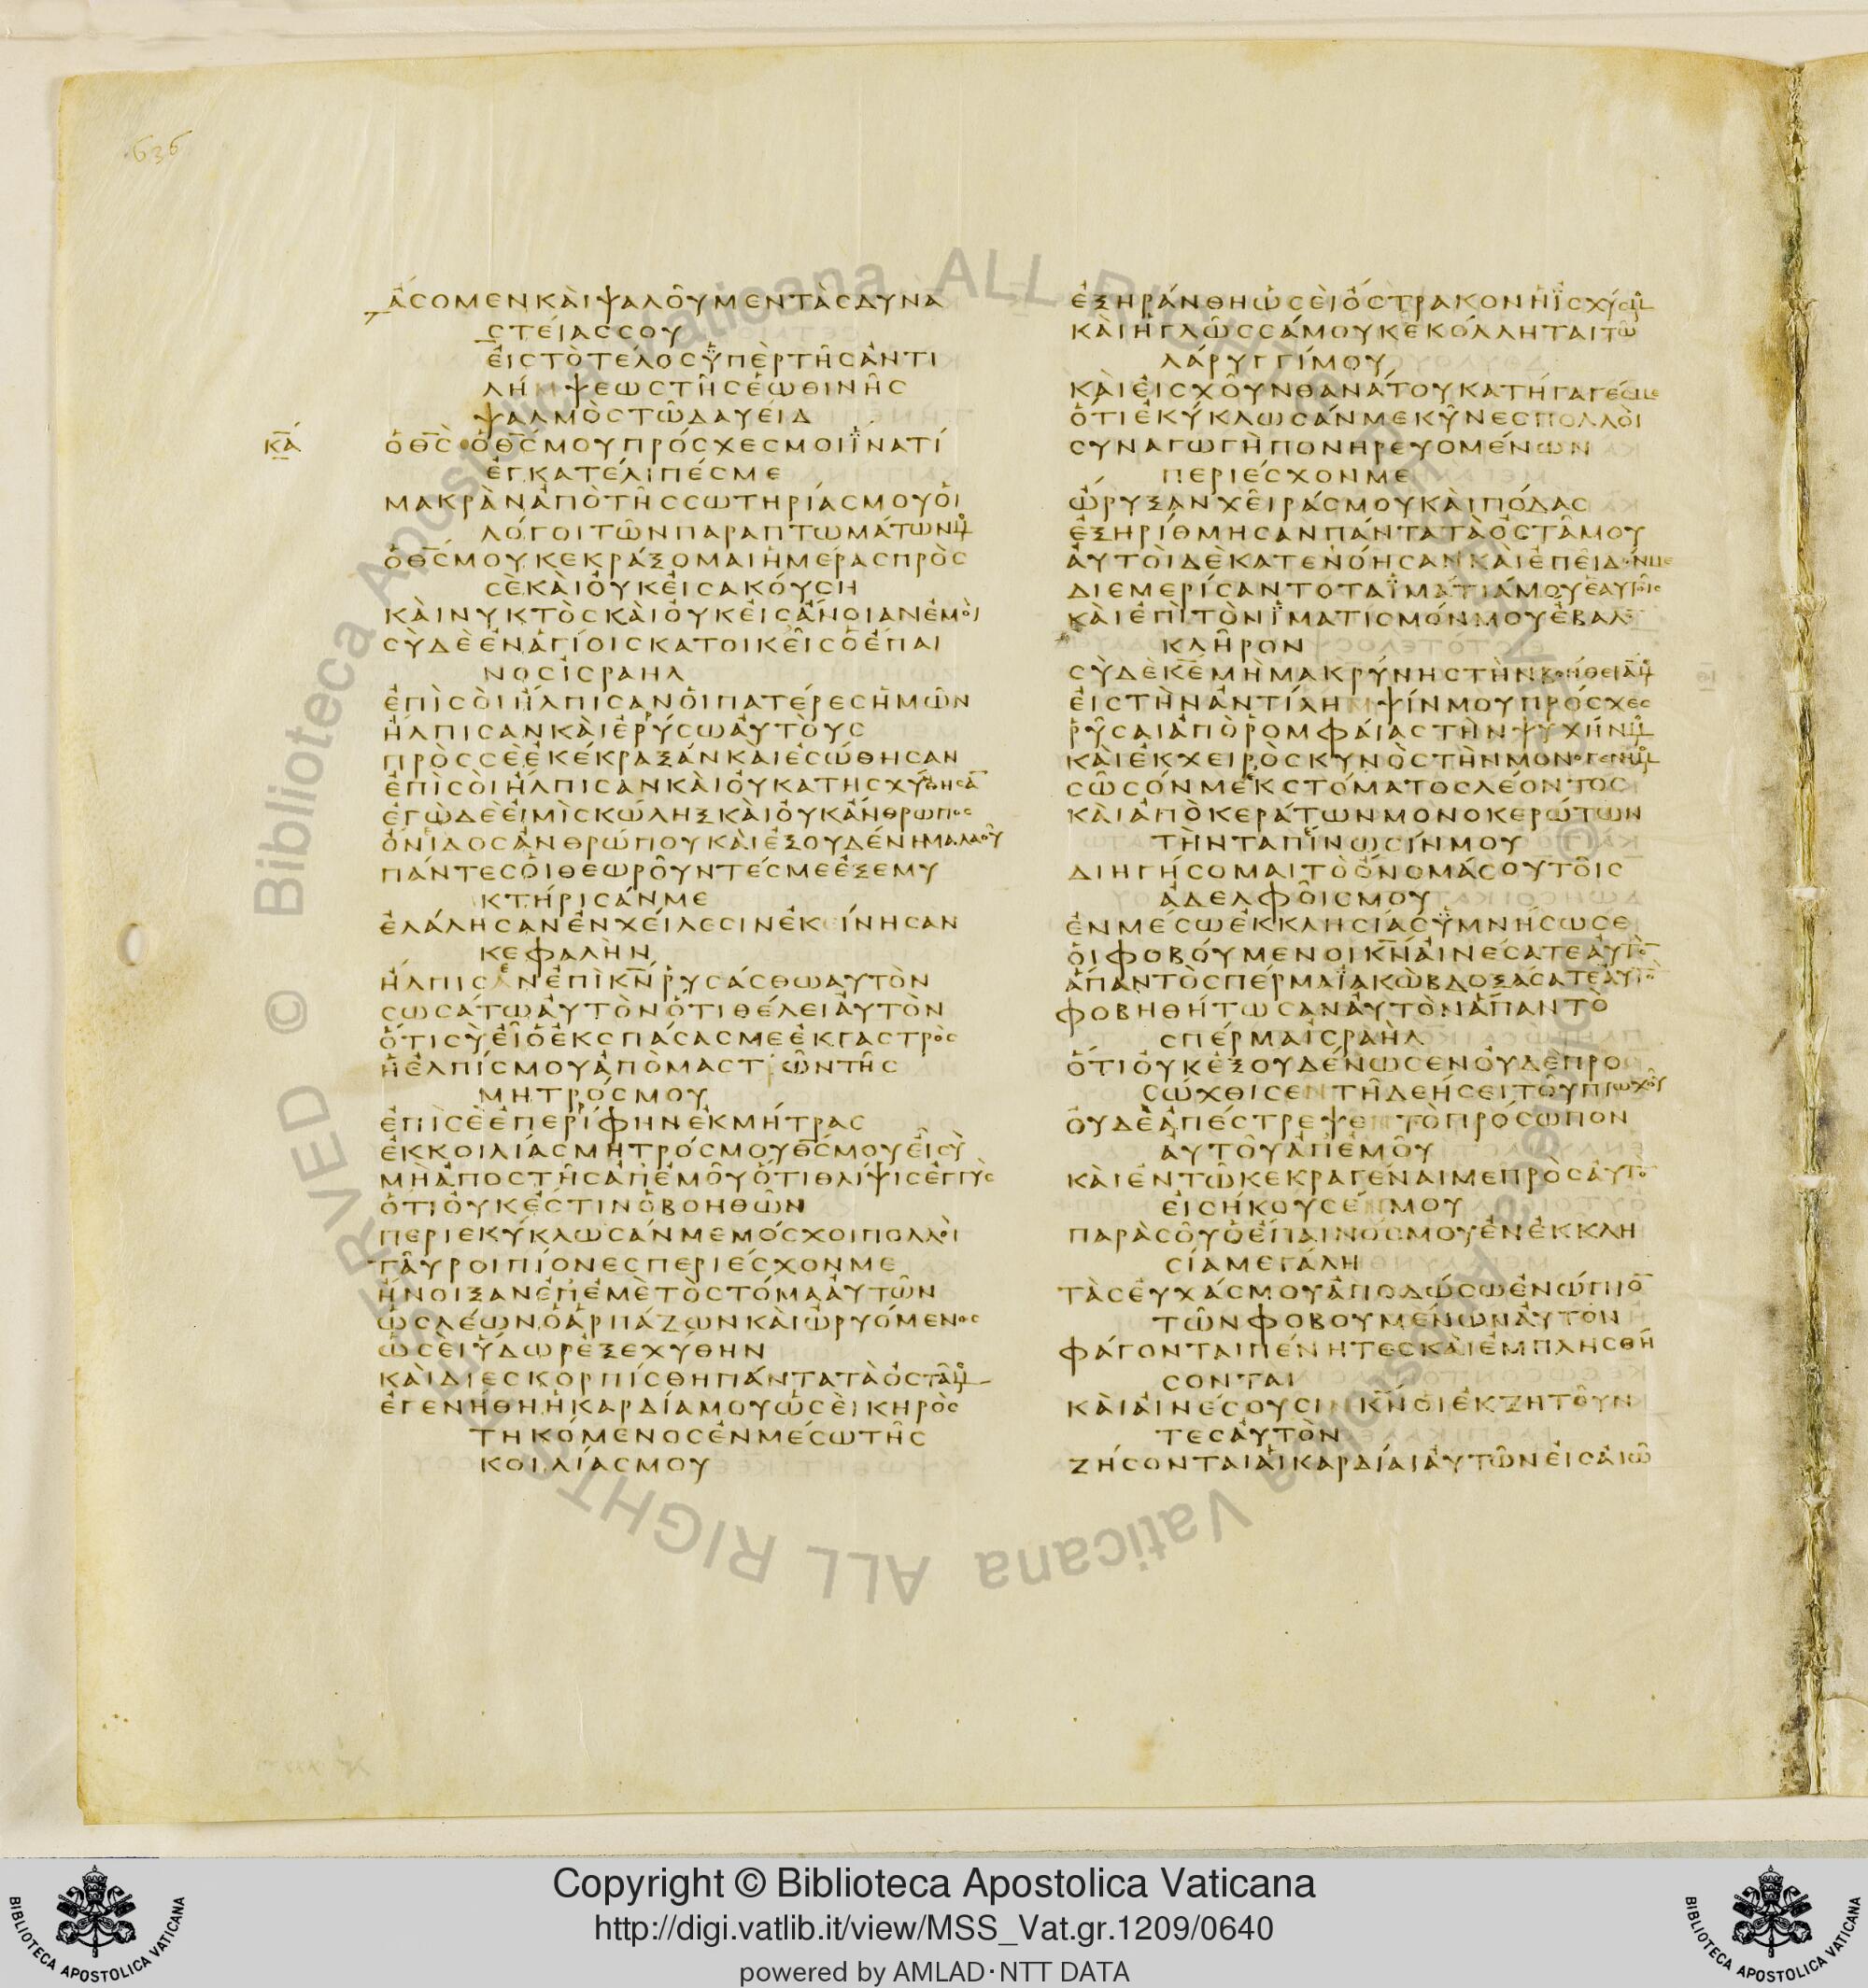 636
ἄσομεν καὶ ψαλοῦμεν τὰς δυνα
στείας σου
εἰς τὸ τέλος ὑπὲρ τῆς ἀντι
λήμψεως τῆς ἑωθινῆς
ψαλμὸς τῷ δαυείδ
κα
ὁ θς ὁ θς μου πρόσχες μοι ἵνα τί
ἐγκατέλιπές με
μακρὰν ἀπὸ τῆς σωτηρίας μου οἱ
λόγοι τῶν παραπτωμάτων μου
ὁ θς μου κεκράξομαι ἡμέρας πρὸς
σὲ καὶ οὐκ εἰσακούσῃ
καὶ νυκτὸς καὶ οὐκ εἰς ἄνοιαν ἐμοὶ
σὺ δὲ ἐν ἁγίοις κατοικεῖς ὁ ἔπαι
νος ἰσραηλ
ἐπὶ σοὶ ἤλπισαν οἱ πατέρες ἡμῶν
ἤλπισαν καὶ ἐρύσω αὐτοὺς
πρὸς σὲ ἐκέκραξαν καὶ ἐσώθησαν
ἐπὶ σοὶ ἤλπισαν καὶ οὐ κατῃσχύνθησα
ἐγὼ δέ εἰμι σκώληξ καὶ οὐκ ἄνθρωπος
ὄνιδος ἀνθρώπου καὶ ἐξουδένημα λαοῦ
πάντες οἱ θεωροῦντές με ἐξεμυ
κτήρισάν με
ἐλάλησαν ἐν χείλεσιν ἐκείνησαν
κεφαλὴν
ἤλπισεν ἐπὶ κν ῥυσάσθω αὐτὸν
σωσάτω αὐτὸν ὅτι θέλει αὐτὸν
ὅτι σὺ εἶ ὁ ἐκσπάσας με ἐκ γαστρὸς
ἡ ἐλπίς μου ἀπὸ μαστῶν τῆς
μητρός μου
ἐπὶ σὲ ἐπερίφην ἐκ μήτρας
ἐκ κοιλίας μητρός μου θς μου εἶ σὺ
μὴ ἀποστῇς ἀπ ἐμοῦ ὅτι θλίψις ἐγγὺς
ὅτι οὐκ ἔστιν ὁ βοηθῶν
περιεκύκλωσάν με μόσχοι πολλοὶ
ταῦροι πίονες περιέσχον με
ἤνοιξαν ἐπ ἐμὲ τὸ στόμα αὐτῶν
ὡς λέων ὁ ἁρπάζων καὶ ὠρυόμενος
ὡσεὶ ὕδωρ ἐξεχύθην
καὶ διεσκορπίσθη πάντα τὰ ὀστᾶ μου
ἐγενήθη ἡ καρδία μου ὡσεὶ κηρὸς
τηκόμενος ἐν μέσῳ τῆς
κοιλίας μου
ἐξηράνθη ὡσεὶ ὄστρακον ἡ ἰσχύς μου
καὶ ἡ γλῶσσά μου κεκόλληται τῷ
λάρυγγί μου
καὶ εἰς χοῦν θανάτου κατήγαγές με
ὅτι ἐκύκλωσάν με κύνες πολλοὶ
συναγωγὴ πονηρευομένων
περιέσχον με
ὤρυξαν χεῖράς μου καὶ πόδας
ἐξηρίθμησαν πάντα τὰ ὀστᾶ μου
αὐτοὶ δὲ κατενόησαν καὶ ἐπεῖδόν με
διεμερίσαντο τὰ ἱμάτιά μου ἑαυτοῖς
καὶ ἐπὶ τὸν ἱματισμόν μου ἔβαλο
κλῆρον
σὺ δὲ κε μὴ μακρύνῃς τὴν βοήθειά μου
εἰς τὴν ἀντίλημψίν μου πρόσχες
ῥῦσαι ἀπὸ ῥομφαίας τὴν ψυχήν μου
καὶ ἐκ χειρὸς κυνὸς τὴν μονογενῆ μου
σῶσόν με ἐκ στόματος λέοντος
καὶ ἀπὸ κεράτων μονοκερώτων
τὴν ταπίνωσίν μου
διηγήσομαι τὸ ὄνομά σου τοῖς
ἀδελφοῖς μου
ἐν μέσῳ ἐκκλησίας ὑμνήσω σε
οἱ φοβούμενοι κν αἰνέσατε αὐτὸ
ἅπαν τὸ σπέρμα ἰακὼβ δοξάσατε αὐτὸ
φοβηθήτωσαν αὐτὸν ἅπαν τὸ
σπέρμα ἰσραὴλ
ὅτι οὐκ ἐξουδένωσεν οὐδὲ προ
σώχθισεν τῇ δεήσει τοῦ πτωχοῦ
οὐδὲ ἀπέστρεψεν τὸ πρόσωπον
αὐτοῦ ἀπ ἐμοῦ
καὶ ἐν τῷ κεκραγέναι με πρὸς αὐτὸ
εἰσήκουσέν μου
παρὰ σοῦ ὁ ἔπαινός μου ἐν ἐκκλη
σίᾳ μεγάλῃ
τὰς εὐχάς μου ἀποδώσω ἐνώπιο
τῶν φοβουμένων αὐτόν
φάγονται πένητες καὶ ἐμπλησθή
σονται
καὶ αἰνέσουσιν κν οἱ ἐκζητοῦν
τες αὐτὸν
ζήσονται αἱ καρδίαι αὐτῶν εἰς αἰῶ
© Biblioteca Apostolica Vaticana ALL RIGHTS RESERVED
Copyright © Biblioteca Apostolica Vaticana
http://digi.vatlib.it/view/MSS_Vat.gr.1209/0640
powered by AMLAD·NTT DATA
BIBLIOTECA APOSTOLICA VATICANA
BIBLIOTECA APOSTOLICA VATICANA